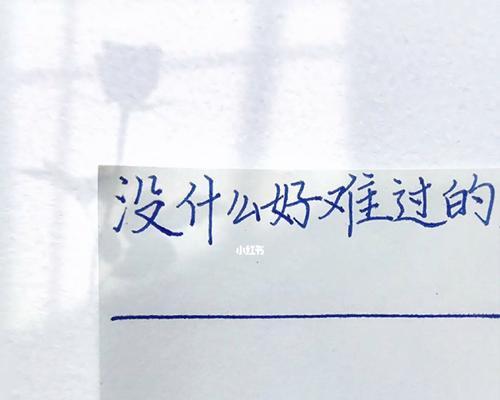 没什么好难过的
小红书